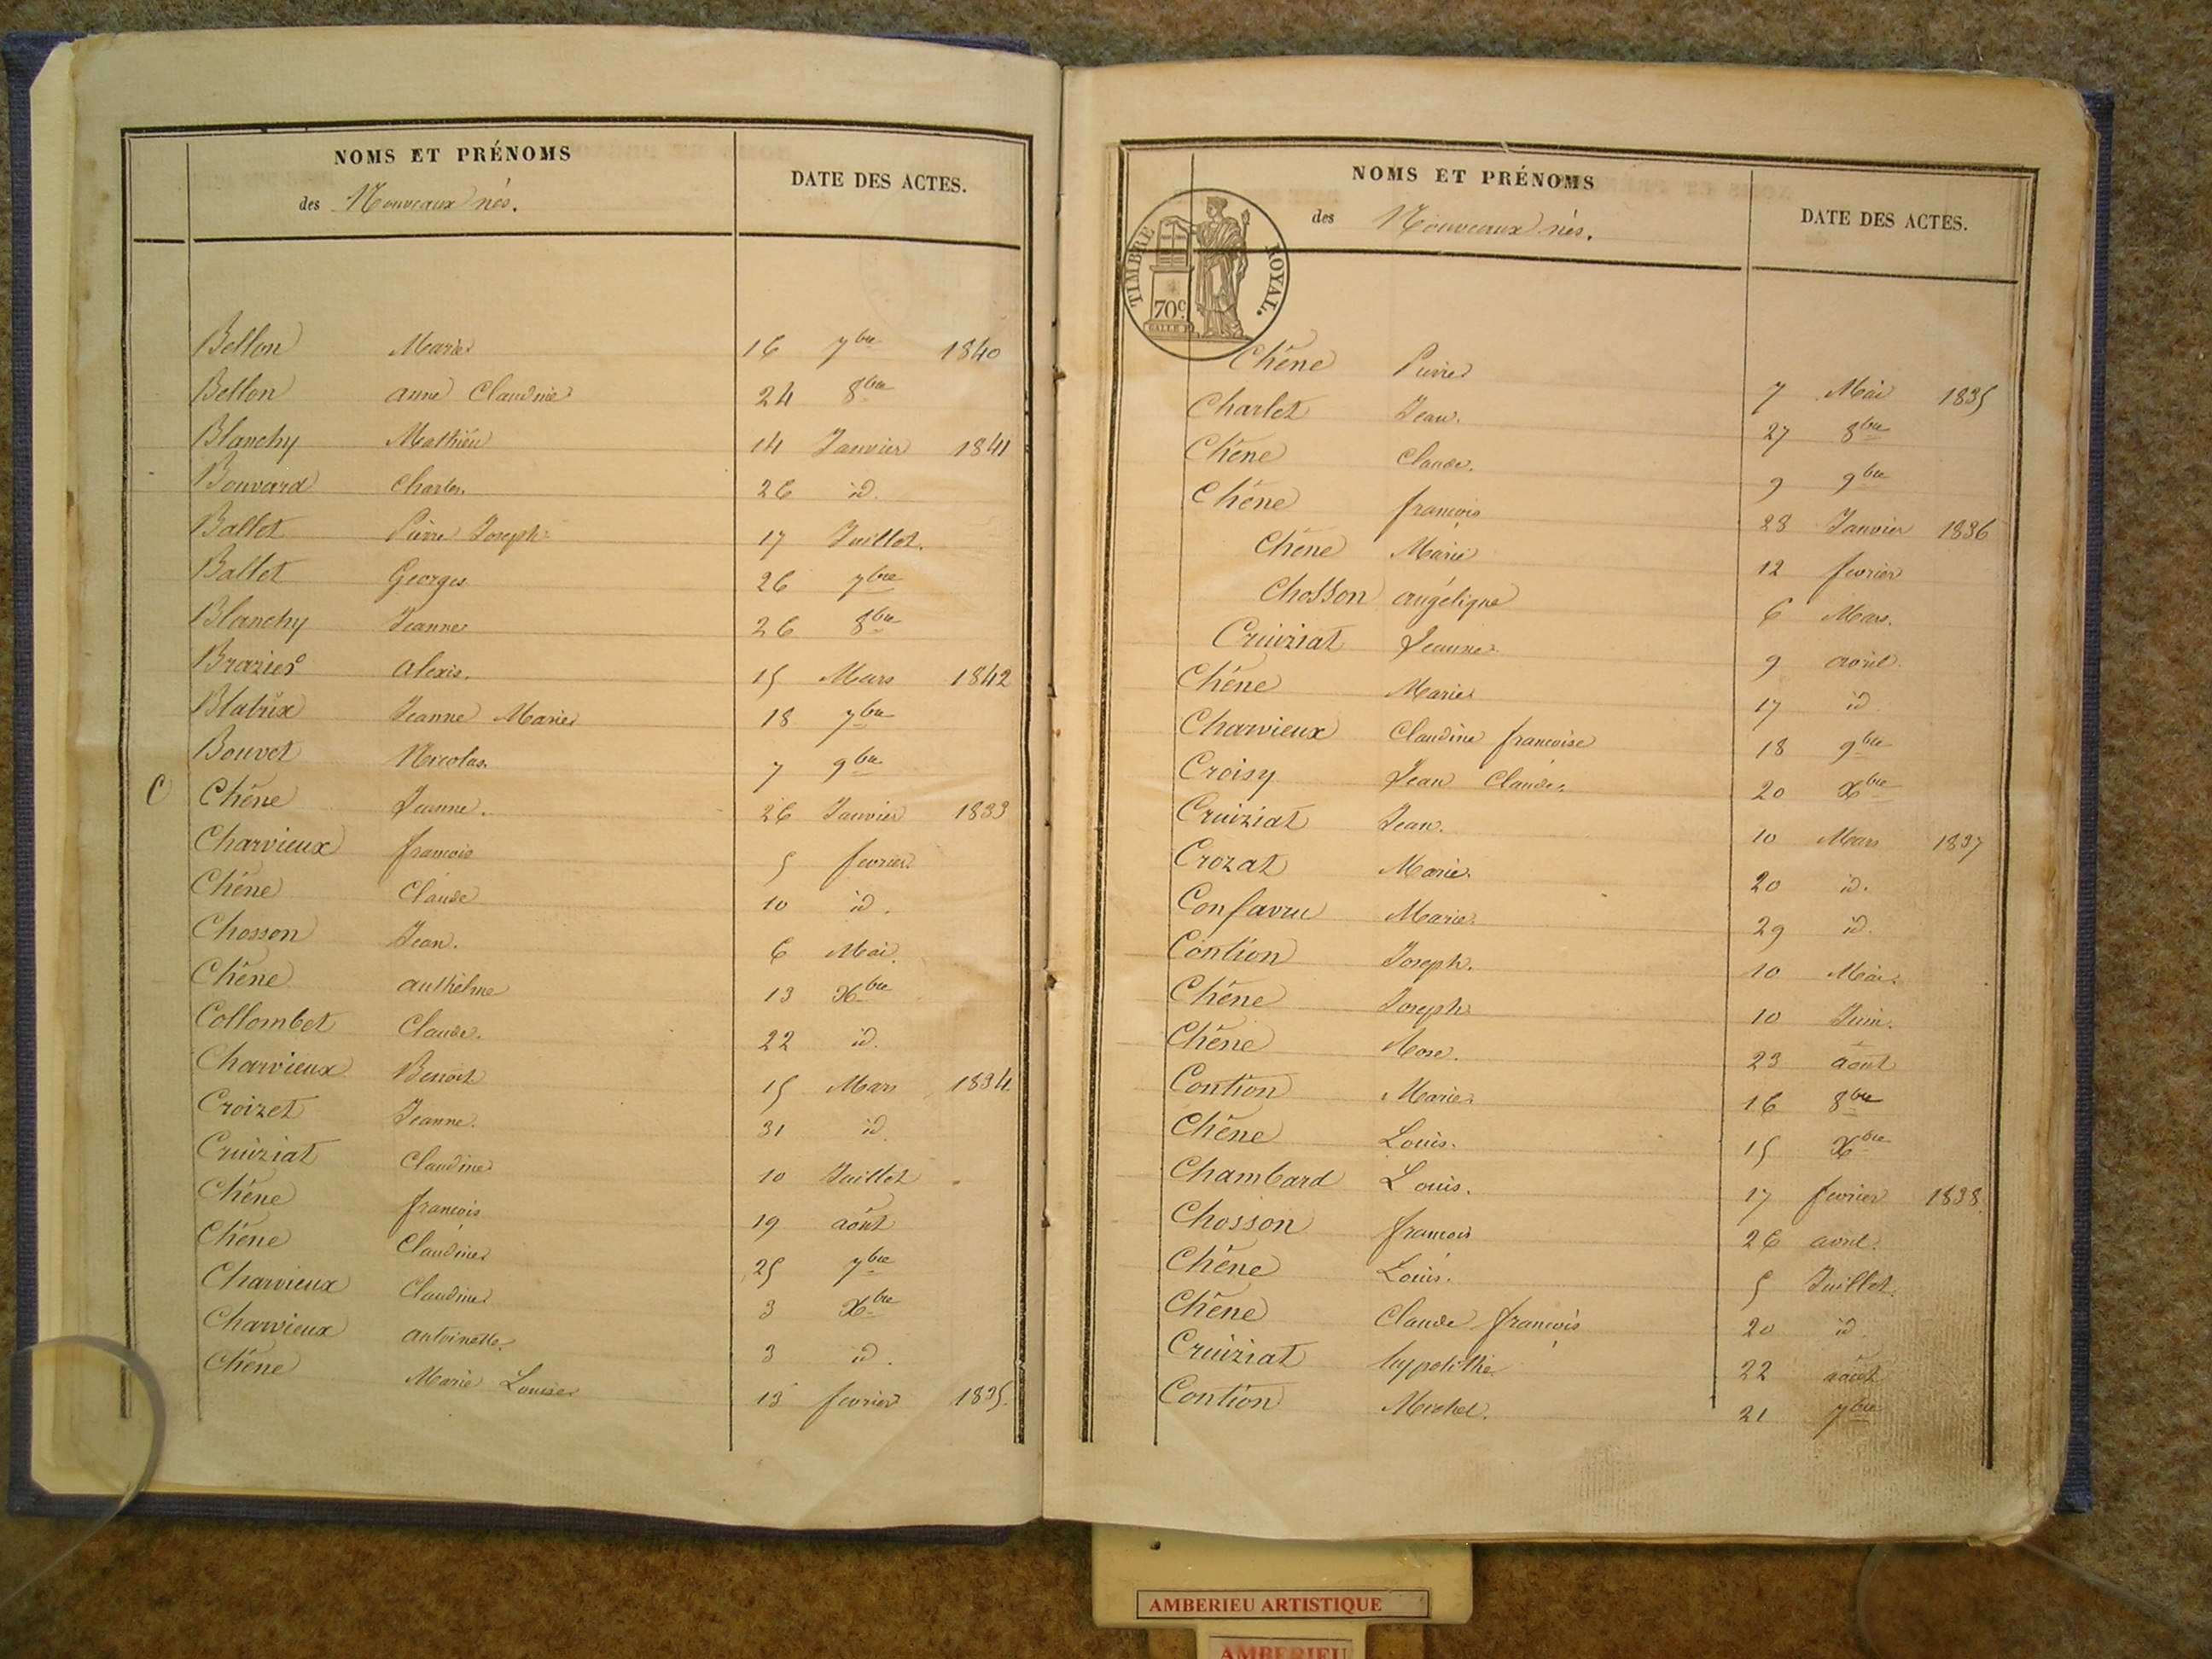 NOMS ET PRÉNOMS
des Nouveaux nés.
DATE DES ACTES.
Bellon Marie 16 7bre 1840
Bellon anne Claudine 24 8bre
Blanchy Mathieu 14 Janvier 1841
Bouvard Charles. 26 id.
Ballet Pierre Joseph 17 Juillet.
Ballet Georges 26 7bre
Blanchy Jeanne 26 8bre
Brazier alexis. 15 Mars 1842
Blatrix Jeanne Marie 18 7bre
Bouvet Nicolas 7 9bre
C Chêne Jeanne. 26 Janvier 1833
Charvieux françois 5 fevrier
Chêne Claude 10 id.
Chosson Jean. 6 Mai.
Chêne anthelme 13 Xbre
Collombet Claude. 22 id.
Charvieux Benoit 15 Mars 1834
Croizet Jeanne. 31 id.
Cruiziat Claudine 10 Juillet
Chêne françois 19 août
Chêne Claudine 25 7bre
Charvieux Claudine 3 Xbre
Charvieux antoinette. 3 id.
Chêne Marie Louise 13 fevrier 1835.
NOMS ET PRÉNOMS
des Nouveaux nés.
DATE DES ACTES.
TIMBRE ROYAL.
70c
Chêne Pierre 7 Mai 1835
Charlet Jean. 27 8bre
Chêne Claude. 9 9bre
Chêne françois 28 Janvier 1836
Chêne Marie 12 fevrier
Chosson angélique 6 Mars.
Cruiziat Jeanne 9 avril.
Chêne Marie 17 id
Charvieux Claudine françoise 18 9bre
Croisy Jean Claude. 20 Xbre
Cruiziat Jean. 10 Mars 1837
Crozat Marie. 20 id.
Confavru Marie 29 id.
Contion Joseph. 10 Mai.
Chêne Joseph 10 Juin.
Chêne Rose. 23 août
Contion Marie 16 8bre
Chêne Louis. 15 Xbre
Chambard Louis. 17 fevrier 1838.
Chosson françois 26 avril.
Chêne Louis. 5 Juillet.
Chêne Claude françois 20 id.
Cruiziat hyppolithe 22 août
Contion Michel. 21 7bre
AMBERIEU ARTISTIQUE
AMBERIEU